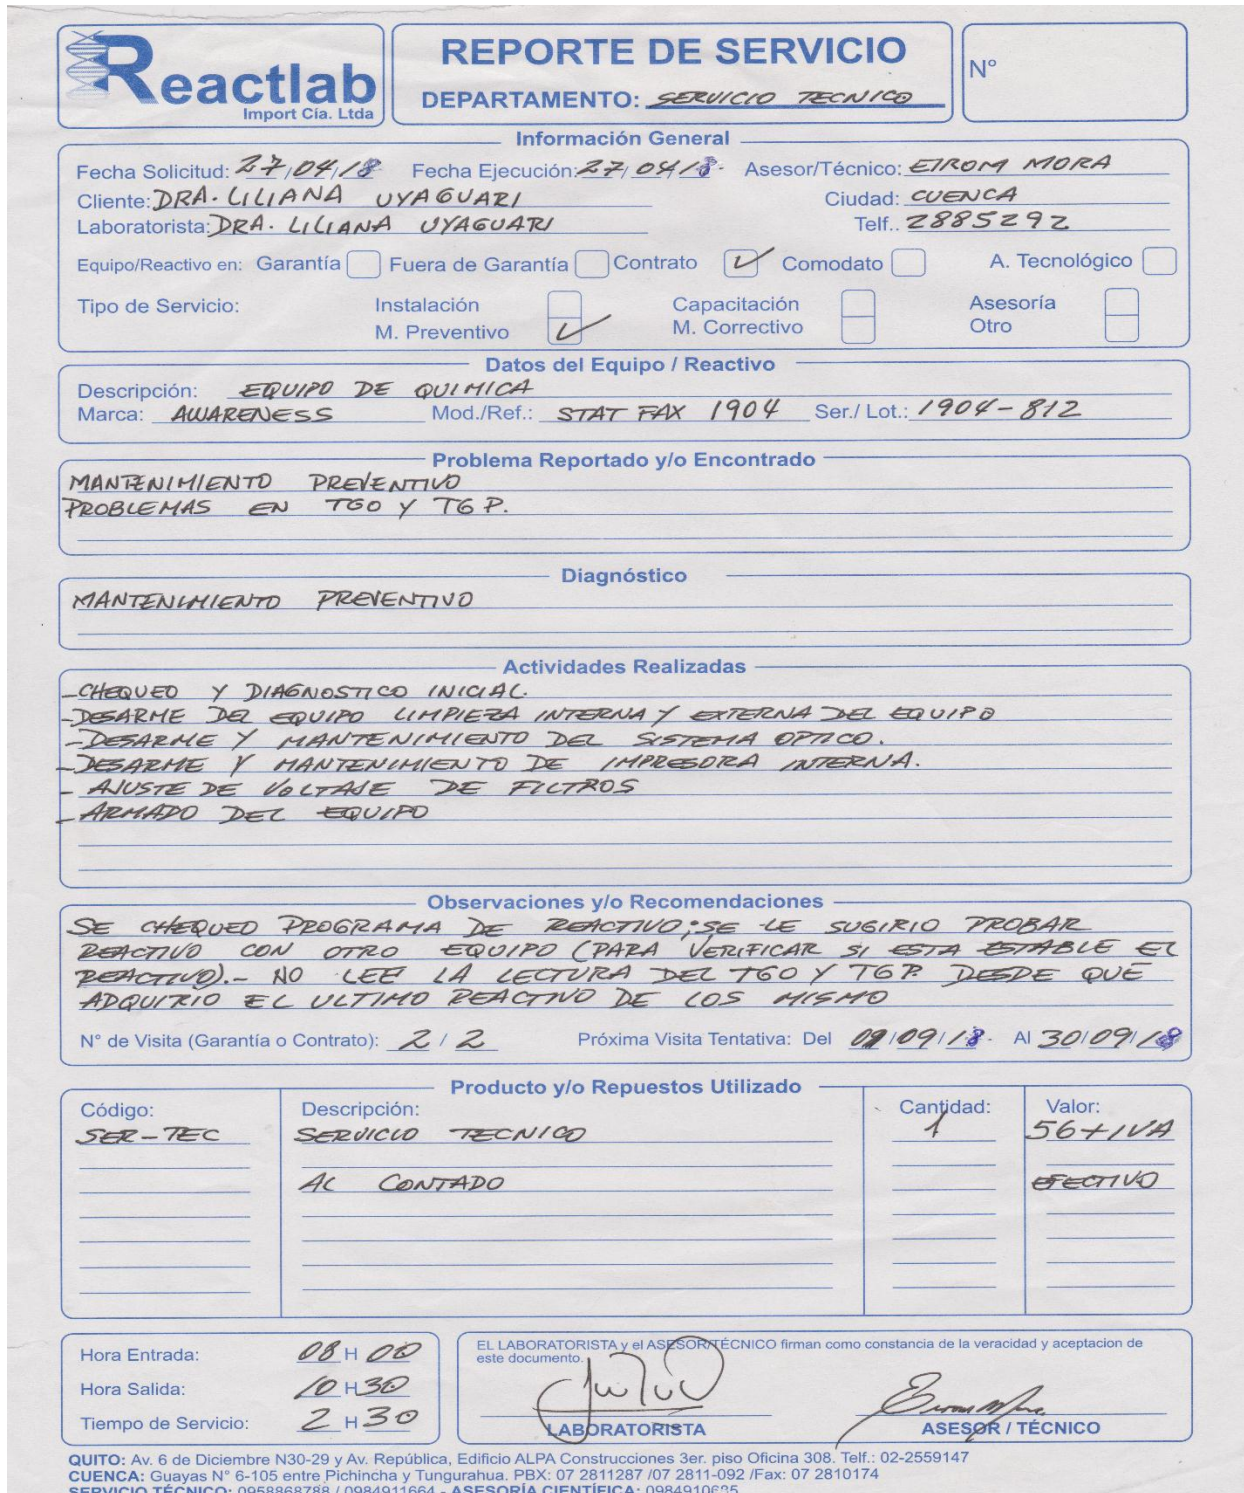 Reactlab
Import Cía. Ltda
REPORTE DE SERVICIO
DEPARTAMENTO: SERVICIO TECNICO
N°
Información General
Fecha Solicitud: 27/04/18 Fecha Ejecución: 27/04/18. Asesor/Técnico: EIROM MORA
Cliente: DRA. LILIANA UYAGUARI Ciudad: CUENCA
Laboratorista: DRA. LILIANA UYAGUARI Telf.. 2885292
Equipo/Reactivo en: Garantía Fuera de Garantía Contrato ✓ Comodato A. Tecnológico
Tipo de Servicio: Instalación Capacitación Asesoría
M. Preventivo ✓ M. Correctivo Otro
Datos del Equipo / Reactivo
Descripción: EQUIPO DE QUIMICA
Marca: AWARENESS Mod./Ref.: STAT FAX 1904 Ser./ Lot.: 1904-812
Problema Reportado y/o Encontrado
MANTENIMIENTO PREVENTIVO
PROBLEMAS EN TGO Y TGP.
Diagnóstico
MANTENIMIENTO PREVENTIVO
Actividades Realizadas
- CHEQUEO Y DIAGNOSTICO INICIAL.
- DESARME DEL EQUIPO LIMPIEZA INTERNA Y EXTERNA DEL EQUIPO
- DESARME Y MANTENIMIENTO DEL SISTEMA OPTICO.
- DESARME Y MANTENIMIENTO DE IMPRESORA INTERNA.
- AJUSTE DE VOLTAJE DE FILTROS
- ARMADO DEL EQUIPO
Observaciones y/o Recomendaciones
SE CHEQUEO PROGRAMA DE REACTIVO; SE LE SUGIRIO PROBAR
REACTIVO CON OTRO EQUIPO (PARA VERIFICAR SI ESTA ESTABLE EL
REACTIVO).- NO LEE LA LECTURA DEL TGO Y TGP. DESDE QUE
ADQUIRIO EL ULTIMO REACTIVO DE LOS MISMO
N° de Visita (Garantía o Contrato): 2 / 2 Próxima Visita Tentativa: Del /09/18. Al 30/09/18
Producto y/o Repuestos Utilizado
Código: Descripción: Cantidad: Valor:
SER-TEC SERVICIO TECNICO 1 56+IVA
AL CONTADO EFECTIVO
Hora Entrada: 08 H 00
Hora Salida: 10 H 30
Tiempo de Servicio: 2 H 30
EL LABORATORISTA y el ASESOR/TÉCNICO firman como constancia de la veracidad y aceptacion de
este documento.
LABORATORISTA ASESOR / TÉCNICO
QUITO: Av. 6 de Diciembre N30-29 y Av. República, Edificio ALPA Construcciones 3er. piso Oficina 308. Telf.: 02-2559147
CUENCA: Guayas N° 6-105 entre Pichincha y Tungurahua. PBX: 07 2811287 /07 2811-092 /Fax: 07 2810174
SERVICIO TÉCNICO: 0958868788 / 0984911664 - ASESORÍA CIENTÍFICA: